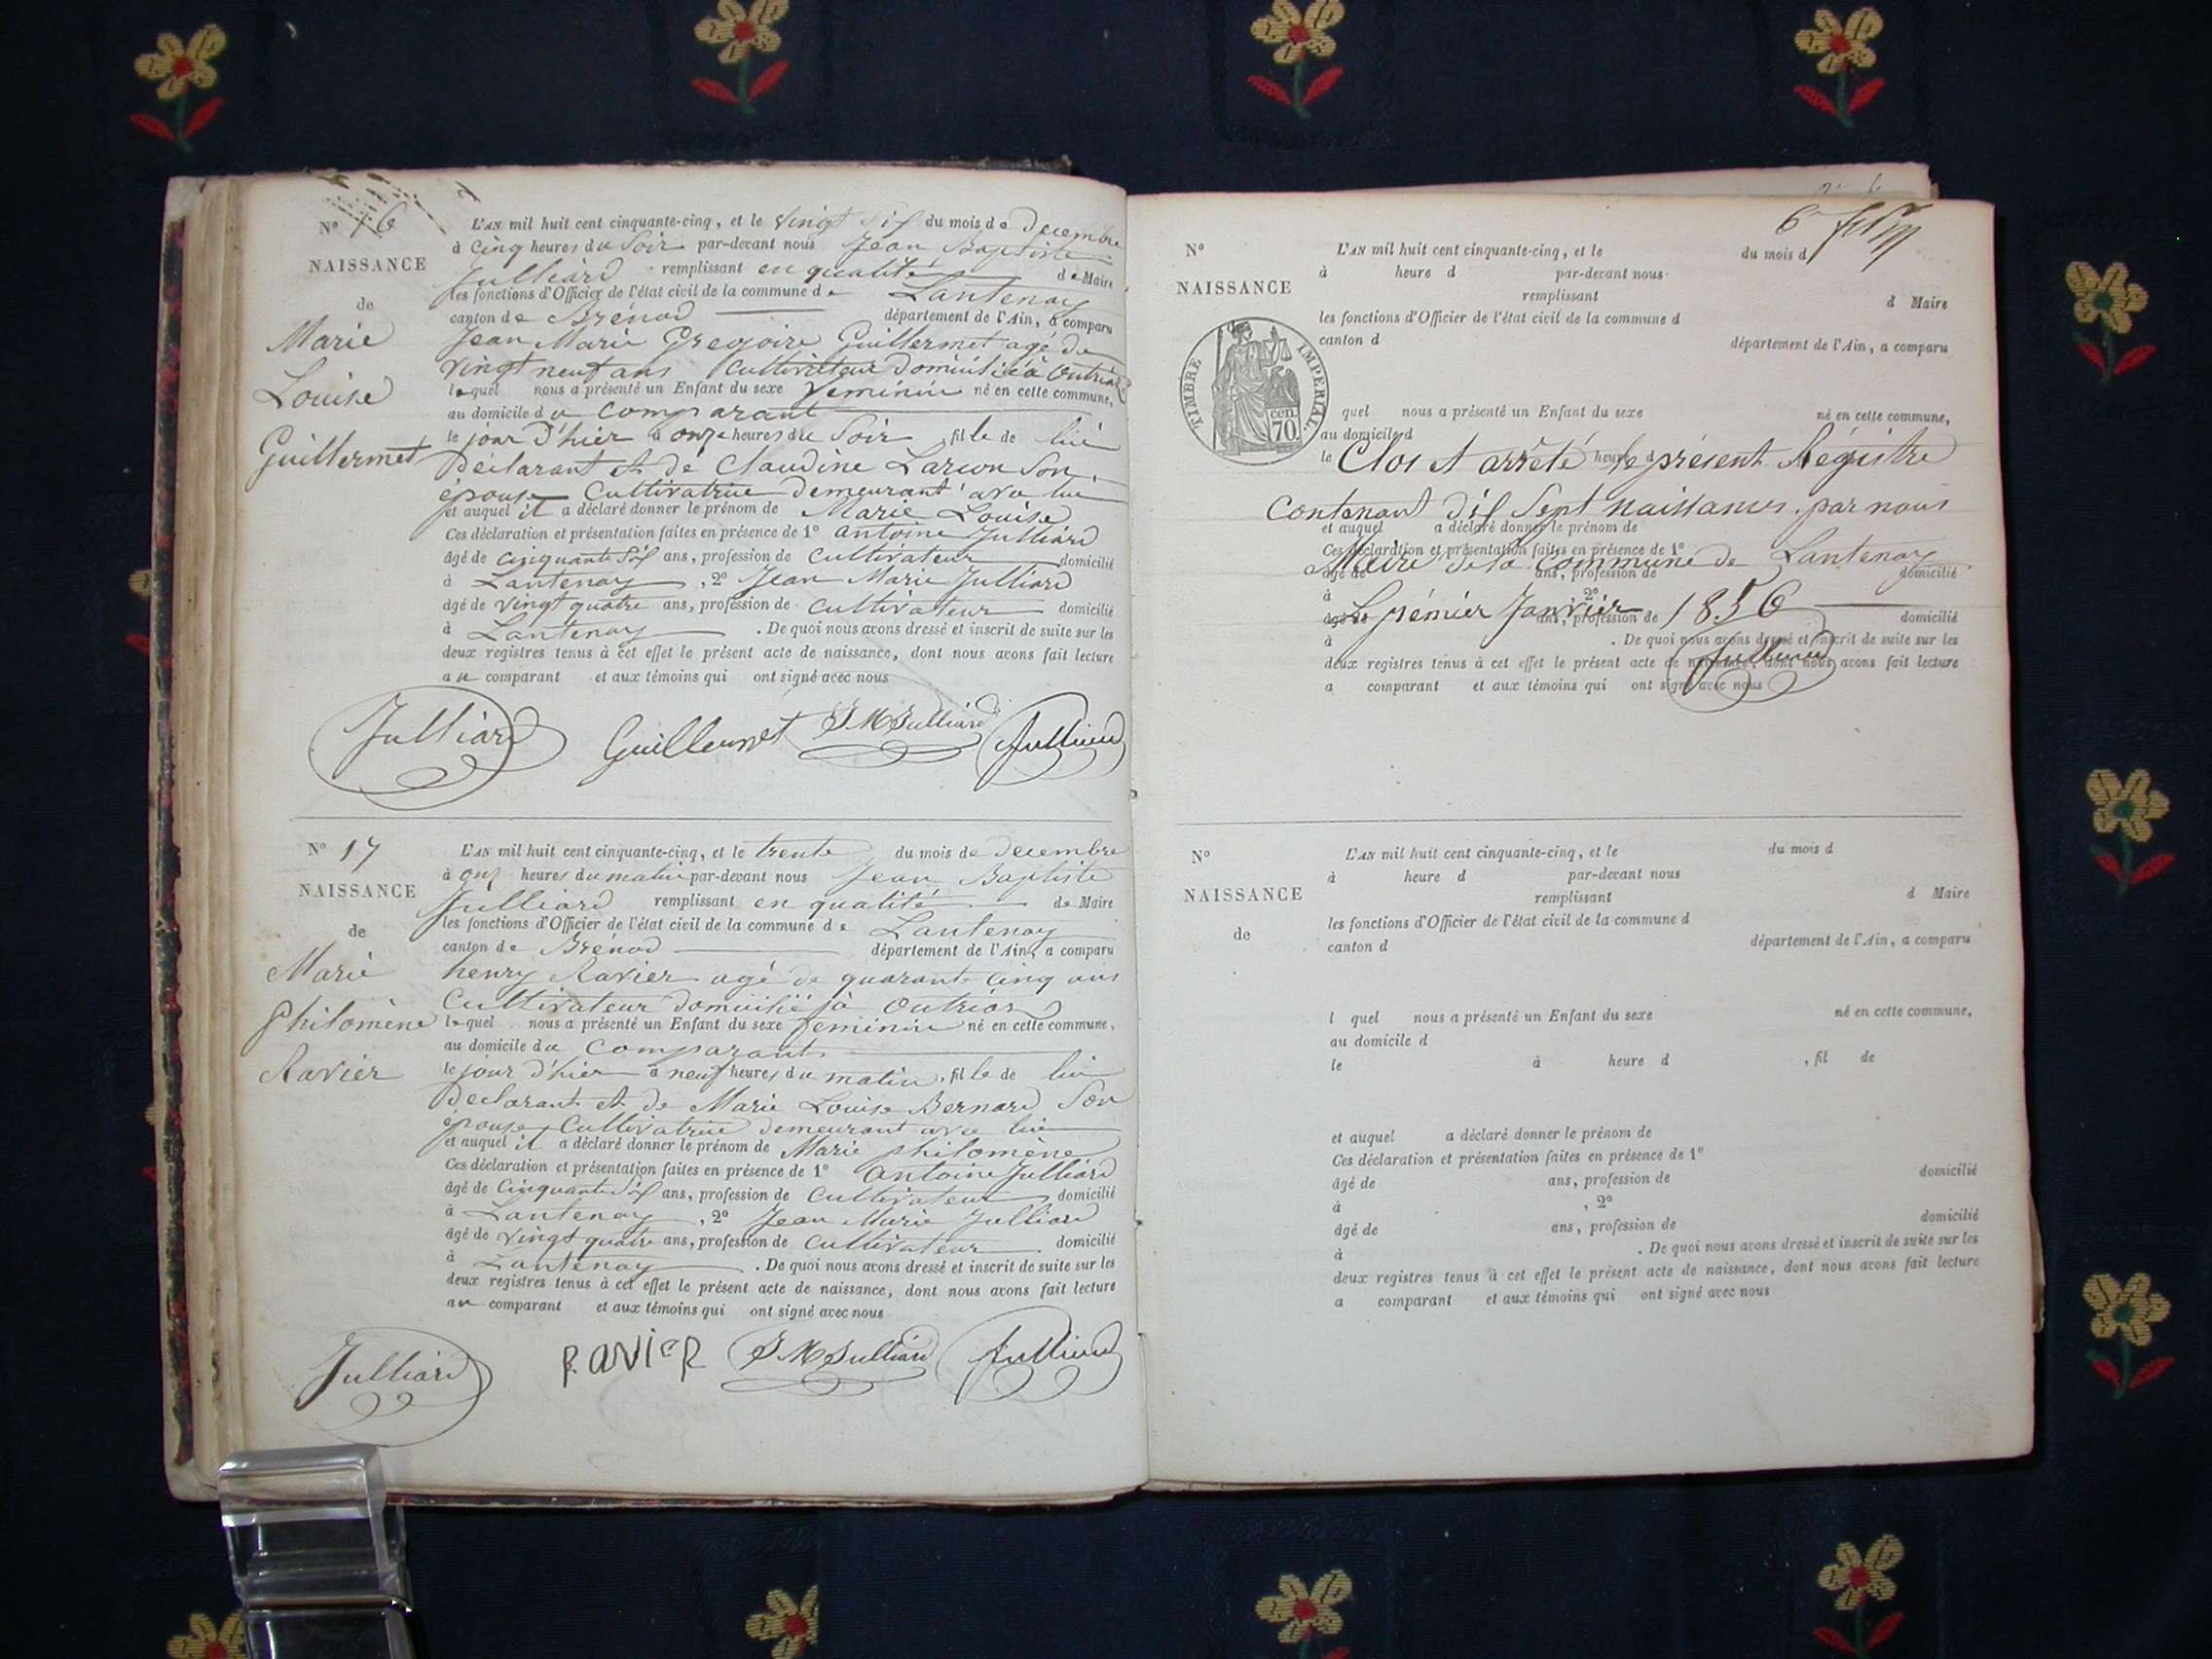 N° 16
NAISSANCE
de
Marie
Louise
Guillermet
L'AN mil huit cent cinquante-cinq, et le vingt six du mois de Decembre
à Cinq heures du Soir par-devant nous Jean Baptiste
Julliard remplissant en qualité de Maire
les fonctions d'Officier de l'état civil de la commune de Lantenay
canton de Brénod département de l'Ain, a comparu
Jean Marie Gregoire Guillermet agé de
vingt neuf ans Cultivateur Domicilié à Outriaz
lequel nous a présenté un Enfant du sexe feminin né en cette commune,
au domicile du Comparant
le jour d'hier à onze heures du Soir, fille de lui
Déclarant et de Claudine Larson Son
épouse Cultivatrice demeurant avec lui
et auquel il a déclaré donner le prénom de Marie Louise
Ces déclaration et présentation faites en présence de 1° antoine Julliard
âgé de Cinquante Six ans, profession de Cultivateur domicilié
à Lantenay, 2° Jean Marie Julliard
âgé de vingt quatre ans, profession de Cultivateur domicilié
à Lantenay. De quoi nous avons dressé et inscrit de suite sur les
deux registres tenus à cet effet le présent acte de naissance, dont nous avons fait lecture
au comparant et aux témoins qui ont signé avec nous
Julliard Guillermet J M Julliard Julliard
N° 17
NAISSANCE
de
Marie
Philomène
Ravier
L'AN mil huit cent cinquante-cinq, et le trente du mois de Decembre
à onz heures du matin par-devant nous Jean Baptiste
Julliard remplissant en qualité de Maire
les fonctions d'Officier de l'état civil de la commune de Lantenay
canton de Brénod département de l'Ain, a comparu
henry Ravier agé de quarante cinq ans
Cultivateur domicilié à Outriaz
lequel nous a présenté un Enfant du sexe feminin né en cette commune,
au domicile du Comparant
le jour d'hier à neuf heures du matin, fille de lui
Declarant et de Marie Louise Bernard Son
épouse Cultivatrice demeurant avec lui
et auquel il a déclaré donner le prénom de Marie philomène
Ces déclaration et présentation faites en présence de 1° antoine Julliard
âgé de Cinquante Six ans, profession de Cultivateur domicilié
à Lantenay, 2° Jean Marie Julliard
âgé de vingt quatre ans, profession de Cultivateur domicilié
à Lantenay. De quoi nous avons dressé et inscrit de suite sur les
deux registres tenus à cet effet le présent acte de naissance, dont nous avons fait lecture
au comparant et aux témoins qui ont signé avec nous
Julliard RAVIER J M Julliard Julliard
6
N°
NAISSANCE
TIMBRE IMPERIAL.
70 cen.
L'AN mil huit cent cinquante-cinq, et le du mois d
à heure d par-devant nous
remplissant d Maire
les fonctions d'Officier de l'état civil de la commune d
canton d département de l'Ain, a comparu
quel nous a présenté un Enfant du sexe né en cette commune,
au domicile d
le heure d
Clos et arrêté le présent Régistre
Contenant dix Sept naissances. par nous
et auquel a déclaré donner le prénom de
Ces déclaration et présentation faites en présence de 1°
Maire de la Commune de Lantenay
âgé de ans, profession de domicilié
à 2°
Le prémier Janvier 1856
âgé de ans, profession de domicilié
à . De quoi nous avons dressé et inscrit de suite sur les
Julliard
deux registres tenus à cet effet le présent acte de naissance, dont nous avons fait lecture
a comparant et aux témoins qui ont signé avec nous
N°
NAISSANCE
de
L'AN mil huit cent cinquante-cinq, et le du mois d
à heure d par-devant nous
remplissant d Maire
les fonctions d'Officier de l'état civil de la commune d
canton d département de l'Ain, a comparu
l quel nous a présenté un Enfant du sexe né en cette commune,
au domicile d
le à heure d , fil de
et auquel a déclaré donner le prénom de
Ces déclaration et présentation faites en présence de 1°
âgé de ans, profession de domicilié
à , 2°
âgé de ans, profession de domicilié
à . De quoi nous avons dressé et inscrit de suite sur les
deux registres tenus à cet effet le présent acte de naissance, dont nous avons fait lecture
a comparant et aux témoins qui ont signé avec nous